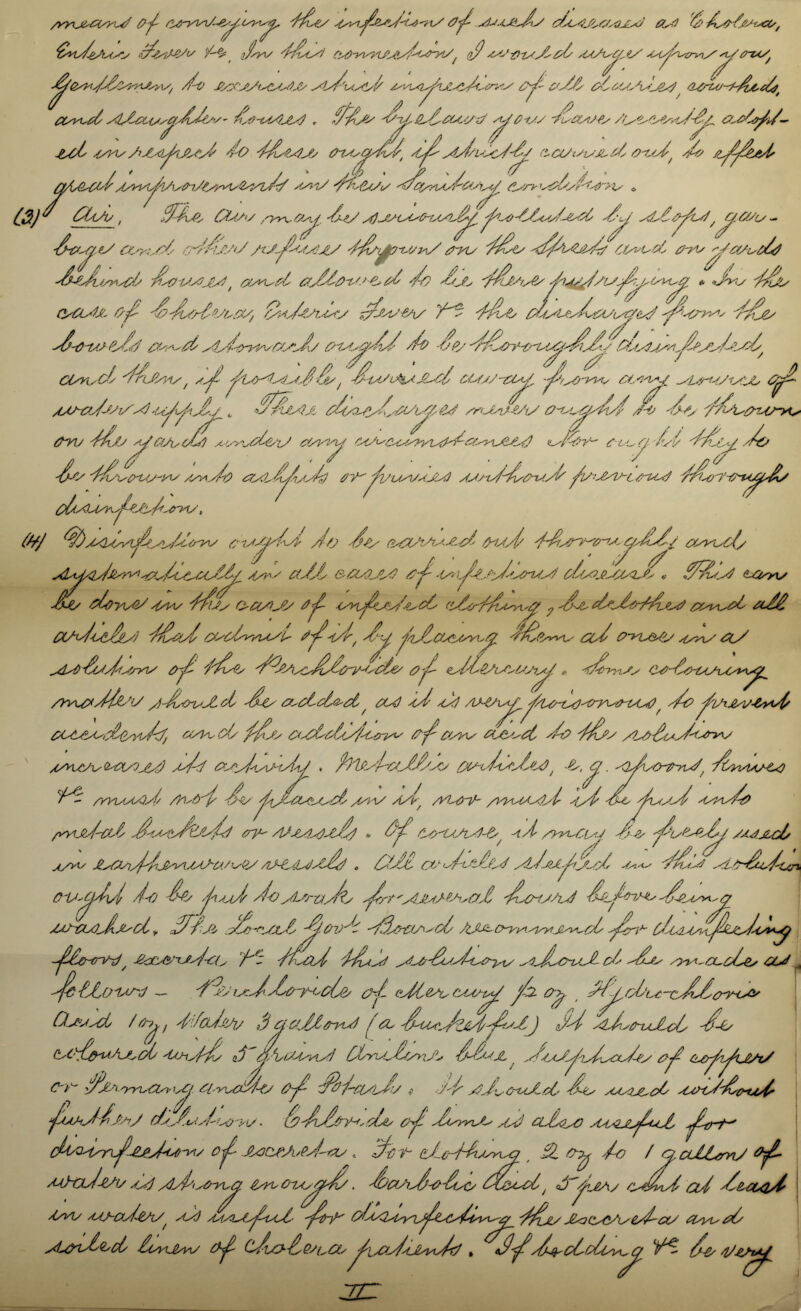 means of conveying the infection of such diseases as Cholera,
Enteric Fever &c. In this connection, I would urge upon your
Gentlemen, to exercise strict inspection of all dairies, cow-sheds,
and slaughter-houses. The byelaws you have recently adopt-
ed in respect to these ought, if strictly carried out, to effect
great improvements in their sanitary condition.
(3) Air, The Air may be seriously polluted by slops, garb-
age and other refuse thrown on the streets and on yards
behind houses, and allowed to lie there putrifying. In the
case of Cholera, Enteric Fever &c the discharges from the
bowels and stomach ought to be thoroughly disinfected,
and then, if possible, buried away from any source of
water supply. These discharges never ought to be thrown
on the yards under any circumstances nor ought they to
be thrown into ashpits or privies without previous thorough
disinfection.
(4) Disinfection ought to be carried out thoroughly and
systematically in all cases of infectious disease. This can
be done in the case of infected clothing, bedclothes and all
articles that admit of it, by placing them at once in a
solution of the Perchloride of Mercury. Some colouring
matter should be added, as it is very poisonous, to prevent
accidents, and the addition of an acid to the solution
increases its activity. Metallic articles, e.g. spoons, knives
&c must not be placed in it, nor must it be put into
metal buckets or vessels. Of course, it may be freely used
in earthenware vessels. All articles steeped in this solution
ought to be put to soak for several hours before being
washed. The Local Govt. Board recommend for disinfecting
floors, excreta, &c that this solution should be made as
follows — Perchloride of Mercury ½ oz, Hydrochloric
Acid 1 oz, Water 3 gallons (a bucketful) It should be
coloured with 5 grains Aniline blue, sulphate of copper
or Permanganate of Potash. It should be used without
further dilution. Chloride of lime is also useful for
disinfection of excreta. For clothing, 2 oz to 1 gallon of
water is strong enough. Carbolic Acid, 5 per cent at least
in water, is useful for disinfecting the excreta and
soiled linen of Cholera patients. If bedding &c be very
II